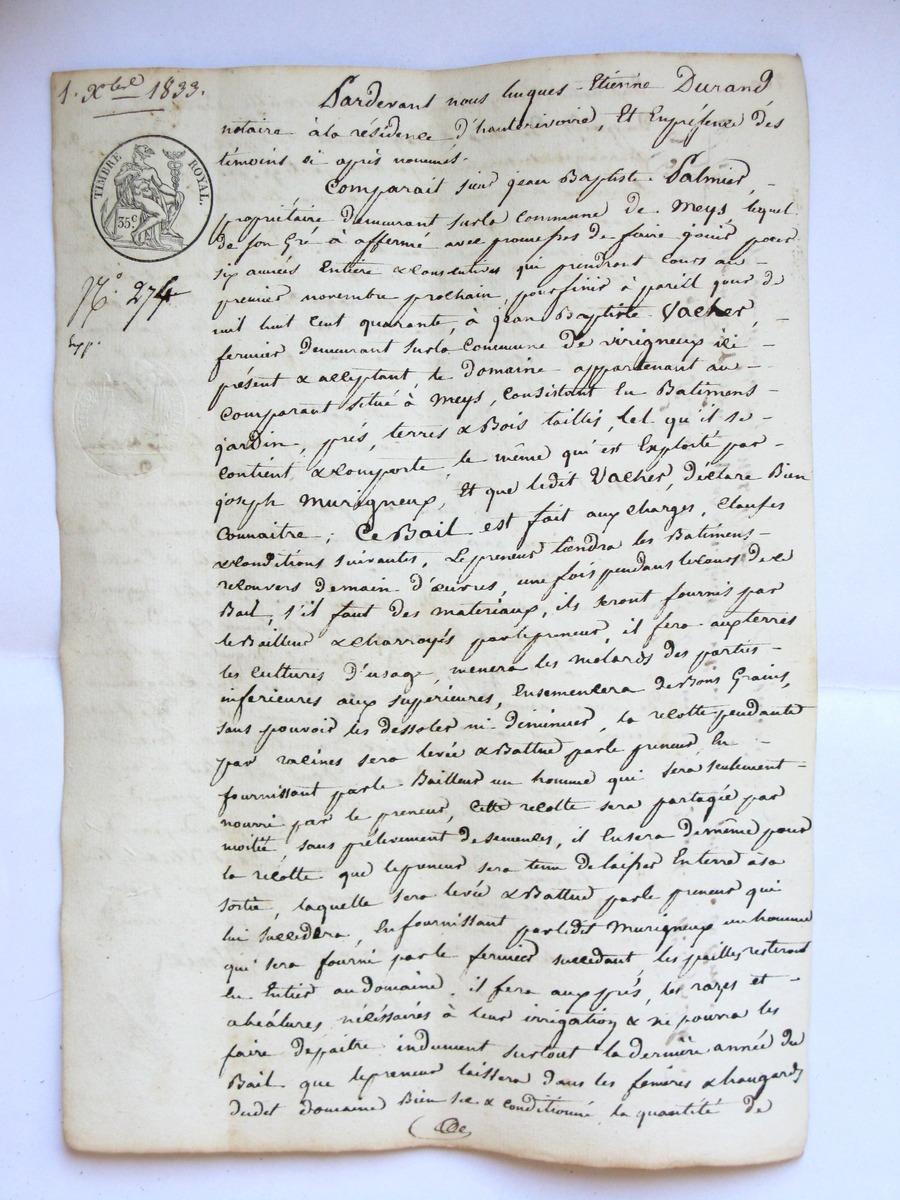 1. Xbre 1833.
TIMBRE ROYAL.
35c
No. 274
Pardevant nous hugues-Etienne Durand
notaire à la résidence d'hauterivoire, Et En présence des
témoins ci après nommés.
Comparait sieur jean Baptiste Palmier, -
propriétaire demeurant sur la commune de Meys, lequel
de son Gré à affermé avec promesses de faire jouir pour
six années Entière & consécutives qui prendront cours au -
premier novembre prochain, pour finir à pareil jour de
mil huit cent quarante, à jean Baptiste Vacher, -
fermier demeurant sur la commune de virigneux ici -
présent & acceptant, le domaine appartenant au -
Comparant situé à Meys, Consistant En Batimens -
jardin, prés, terres & Bois taillis, tel qu'il se -
contient & comporte, le même qui est Exploité par -
joseph Murigneux, Et que ledit Vacher, déclare Bien
Connaitre ; Ce Bail est fait aux Charges, Clauses
& Conditions suivantes, Le preneur tiendra les Batimens -
recouvers de main d'œuvres, une fois pendant le cours de ce
Bail, s'il faut des materiaux, ils seront fournis par
le Bailleur & charroyés par le preneur, il fera aux terres
les cultures d'usage, menera les molards des parties -
inferieures aux supérieures, Ensemencera de Bons Grains,
sans pouvoir les dessoler ni diminuer, la récolte pendante
par racines sera levée & Battue par le preneur En -
fournissant par le Bailleur un homme qui sera seulement -
nourri par le preneur, cette récolte sera partagée par
moitié sans prélevement de semences, il En sera de même pour
la récolte que le preneur sera tenu de laisser En terre à sa
sortie, laquelle sera levée & Battue par le preneur qui
lui succédera, En fournissant par ledit Murigneux un homme
qui sera fourni par le fermier succedant, les pailles resteront
En Entier au domaine, il fera aux prés, les razes et -
abéalures nécéssaires à leur irrigation & ne pourra les
faire depaitre indument surtout la dernière année du
Bail que le preneur laissera dans les fenières & hangards
dudit domaine Bien sec & conditionné la quantité de